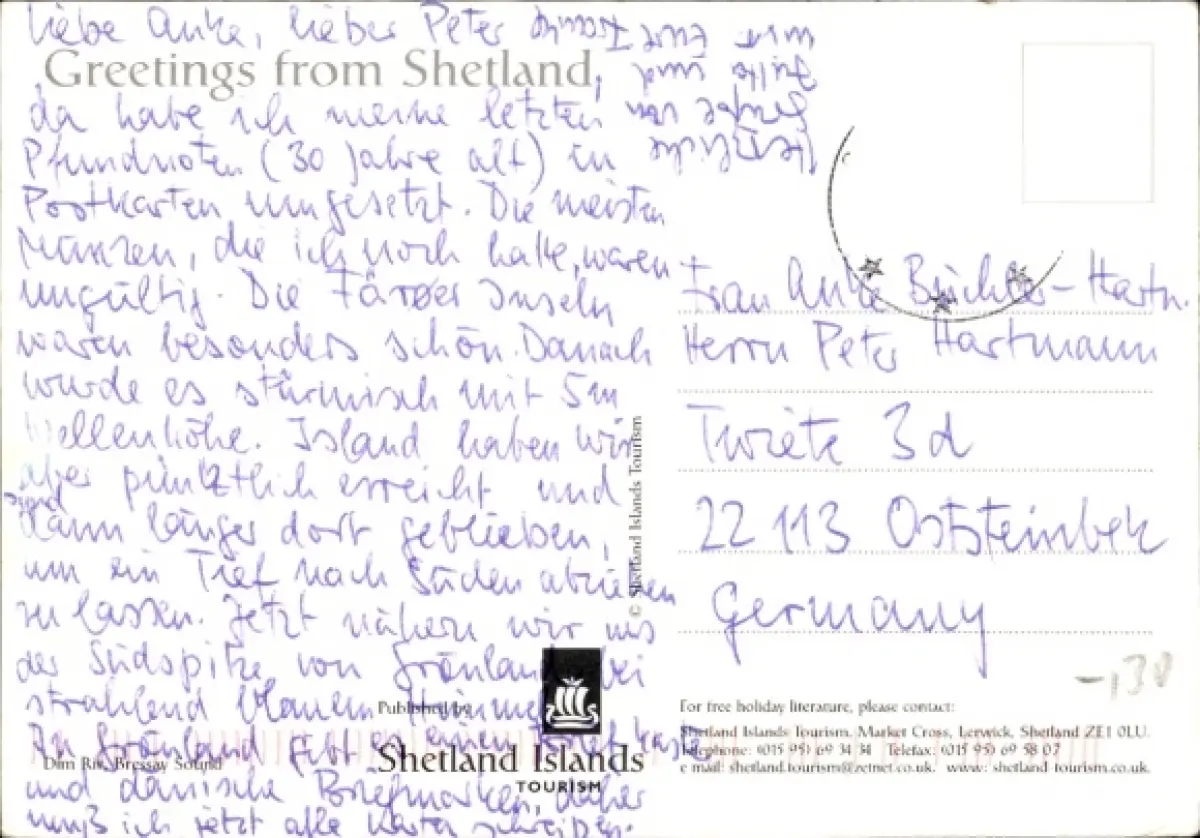 Liebe Anke, lieber Peter
Greetings from Shetland,
da habe ich meine letzten
Pfundnoten (30 Jahre alt) in
Postkarten umgesetzt. Die meisten
Münzen, die ich noch hatte, waren
ungültig. Die Färøer Inseln
waren besonders schön. Danach
wurde es stürmisch mit 5m
Wellenhöhe. Island haben wir
aber pünktlich erreicht und
sind
dann länger dort geblieben,
um ein Tief nach Süden abziehen
zu lassen. Jetzt nähern wir uns
der Südspitze von Grönland bei
strahlend blauem Himmel.
In Grönland gibt es einen Briefkasten
und dänische Briefmarken, daher
muß ich jetzt alle Karten schreiben.
Herzliche
Grüße von
Jutta und
Frau Anke Büchler-Hartm.
Herrn Peter Hartmann
Twiete 3d
22113 Oststeinbek
Germany
-,130
© Shetland Islands Tourism
Published by
Shetland Islands
TOURISM
Dim Riv, Bressay Sound
For free holiday literature, please contact:
Shetland Islands Tourism, Market Cross, Lerwick, Shetland ZE1 0LU.
Telephone: (01595) 69 34 34 Telefax: (01595) 69 58 07
e mail: shetland.tourism@zetnet.co.uk. www: shetland tourism.co.uk.